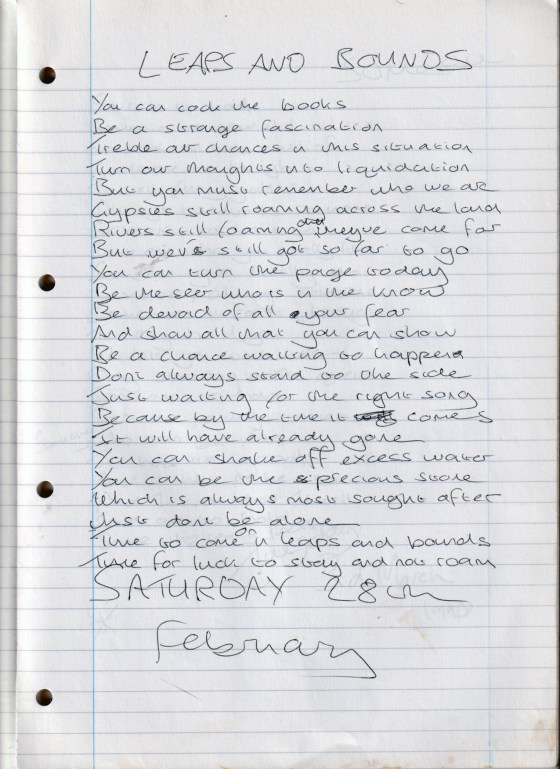 LEAPS AND BOUNDS
You can code the books
Be a strange fascination
Treble our chances in this situation
Turn our thoughts into liquidation
But you must remember who we are
Gypsies still roaming across the land
Rivers still foaming and they've come far
But we've still got so far to go
You can turn the page today
Be the seer who is in the know
Be devoid of all your fear
And show all that you can show
Be a chance waiting to happen
Dont always stand to the side
Just waiting for the right song
Because by the time it comes
It will have already gone
You can shake off excess water
You can be the precious stone
Which is always most sought after
Just dont be alone
Time to come on in leaps and bounds
Time for luck to stay and not roam
SATURDAY 28th
February